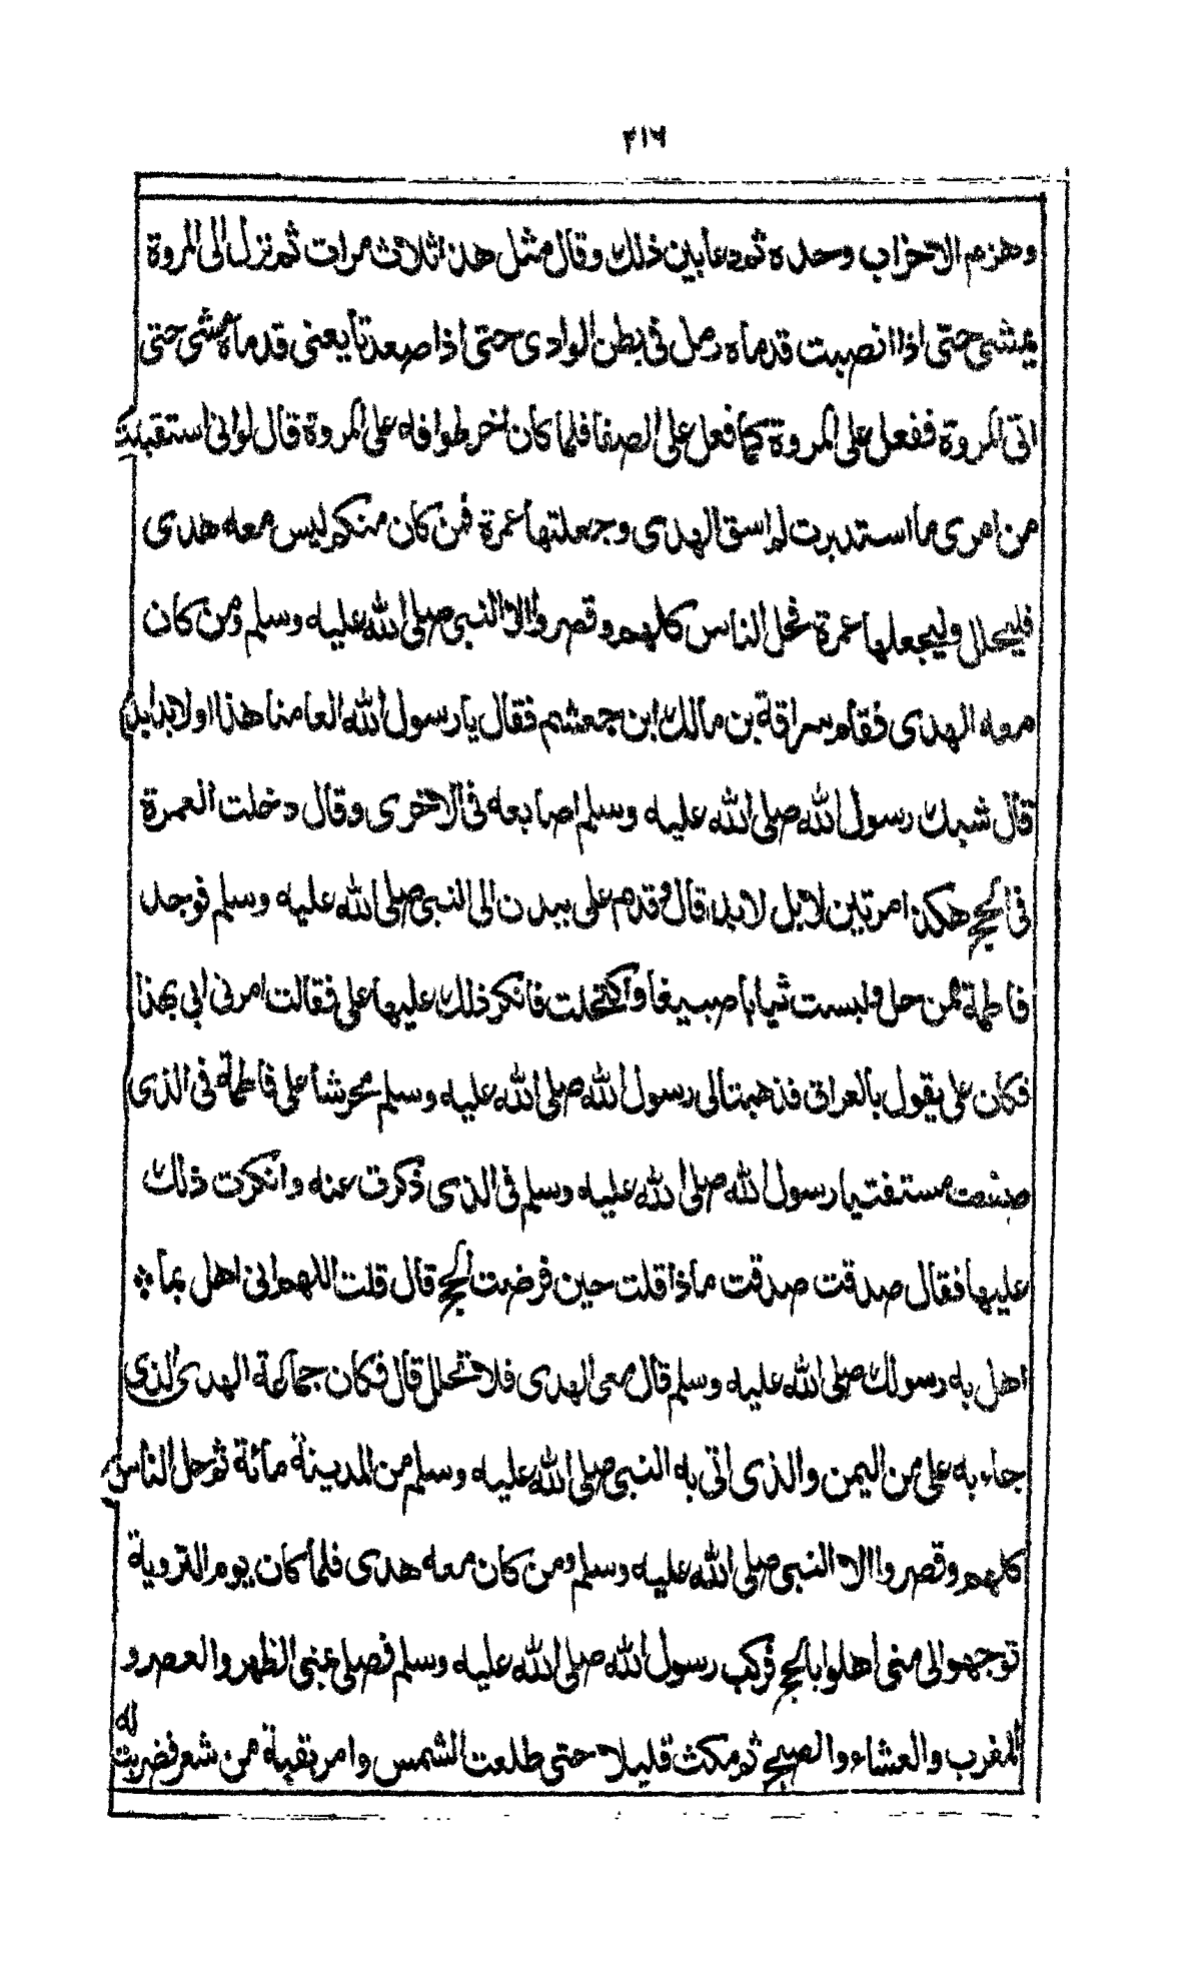 ٢١٦
وهزم الاحزاب وحده ثم دعا بين ذلك وقال مثل هذا ثلاث مرات ثم نزل الى المروة
يمشى حتى اذا انصبت قدماه رمل فى بطن الوادى حتى اذا صعدتا يعنى قدماه مشى حتى
اتى المروة ففعل على المروة كما فعل على الصفا فلما كان اخر طوافه على المروة قال لو انى استقبلت
من امرى ما استدبرت لم اسق الهدى وجعلتها عمرة فمن كان منكم ليس معه هدى
فليحلل وليجعلها عمرة فحل الناس كلهم وقصروا الا النبى صلى الله عليه وسلم ومن كان
معه الهدى فقام سراقة بن مالك ابن جعشم فقال يا رسول الله العامنا هذا او لابد ابد
قال شبك رسول الله صلى الله عليه وسلم اصابعه فى الاخرى وقال دخلت العمرة
فى الحج هكذا مرتين لا بل لابد ابد قال وقدم على ببدن الى النبى صلى الله عليه وسلم فوجد
فاطمة ممن حل ولبست ثيابا صبيغا واكتحلت فانكر ذلك عليها على فقالت امرنى ابى بهذا
فكان على يقول بالعراق فذهبت الى رسول الله صلى الله عليه وسلم محرشا على فاطمة فى الذى
صنعت مستفتيا رسول الله صلى الله عليه وسلم فى الذى ذكرت عنه وانكرت ذلك
عليها فقال صدقت صدقت ماذا قلت حين فرضت الحج قال قلت اللهم انى اهل بما
اهل به رسولك صلى الله عليه وسلم قال معى الهدى فلا تحلل قال فكان جماعة الهدى الذى
جاء به على من اليمن والذى اتى به النبى صلى الله عليه وسلم من المدينة مائة ثم حل الناس
كلهم وقصروا الا النبى صلى الله عليه وسلم ومن كان معه هدى فلما كان يوم التروية
توجهوا الى منى اهلوا بالحج فركب رسول الله صلى الله عليه وسلم فصلى بمنى الظهر والعصر و
المغرب والعشاء والصبح ثم مكث قليلا حتى طلعت الشمس وامر بقبة من شعر فضربت له